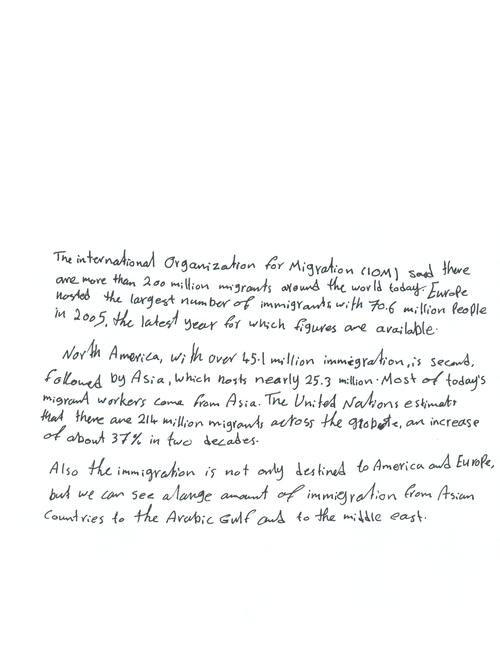 The international Organization for Migration (IOM) said there
are more than 200 million migrants around the world today. Europe
hosted the largest number of immigrants with 70.6 million People
in 2005, the latest year for which figures are available.
North America, with over 45.1 million immigration, is second,
followed by Asia, which hosts nearly 25.3 million. Most of today's
migrant workers come from Asia. The United Nations estimate
that there are 214 million migrants across the globe, an increase
of about 37% in two decades.
Also the immigration is not only destined to America and Europe,
but we can see a large amount of immigration from Asian
Countries to the Arabic Gulf and to the middle east.